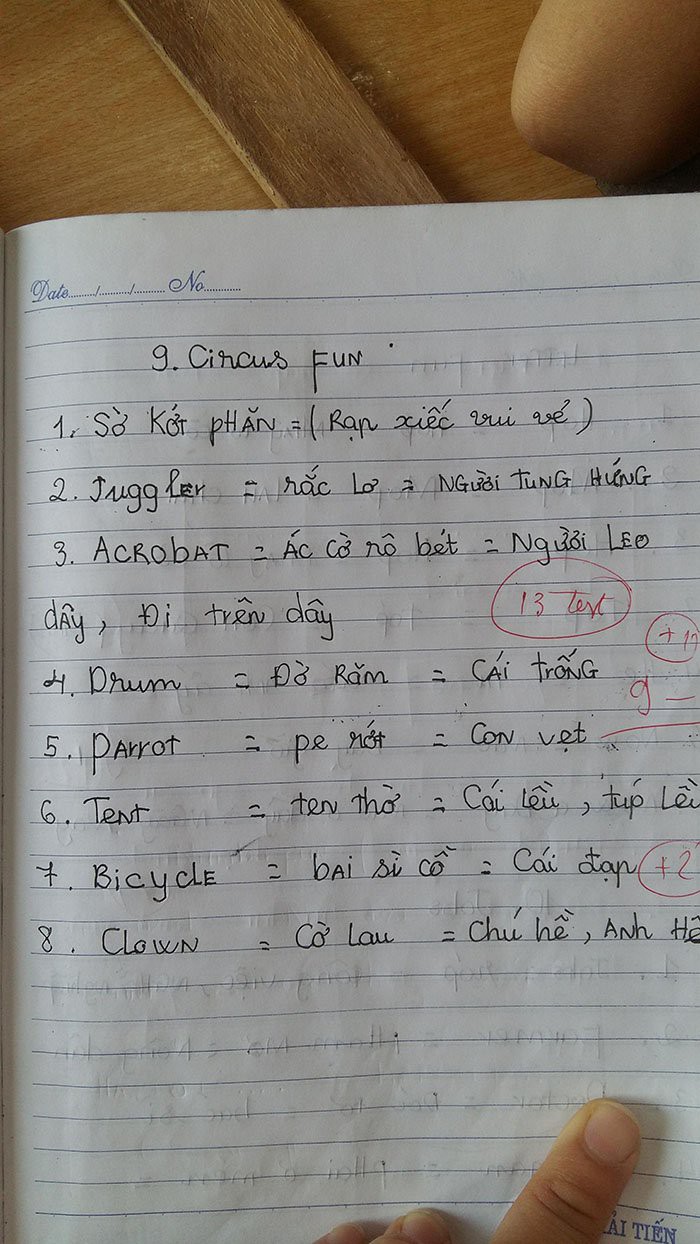 Date......../......../......... No............
9. Circus FUN
1. Sờ Kớt pHĂN = (Rạp xiếc vui vẻ)
2. JuggLEr = rắc Lơ = NGười TUNG HỨNG
3. ACRObAT = ÁC Cờ rô bét = NGười LEO
dÂy, Đi trên dây
13 test
4. Drum = Đờ Răm = CÁi TrỐNG
9 -
5. pArrot = pe rớt = Con vẹt
6. TENT = ten thờ = Cái Lều, túp Lều
7. BicycLE = bAi sì cồ = Cái đạp +2
8. CLOWN = Cờ Lau = Chú hề, ANH HỀ
ẢI TIẾN